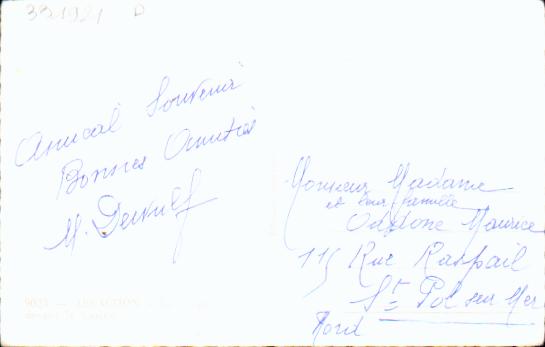 331921 D
Amical Souvenir
Bonnes Amitiés
M.
Monsieur Madame
et leur famille
Oddone Maurice
115 Rue Raspail
St Pol sur Mer
Nord
9023 — ARCACHON
devant le Casino